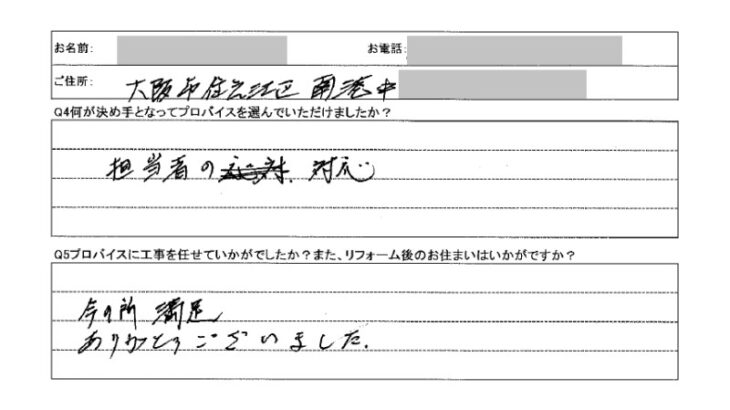 お名前: お電話:
ご住所: 大阪市住之江区南港中
Q4何が決め手となってプロバイスを選んでいただけましたか?
担当者の 対応
Q5プロバイスに工事を任せていかがでしたか?また、リフォーム後のお住まいはいかがですか?
今の所 満足
ありがとうございました.